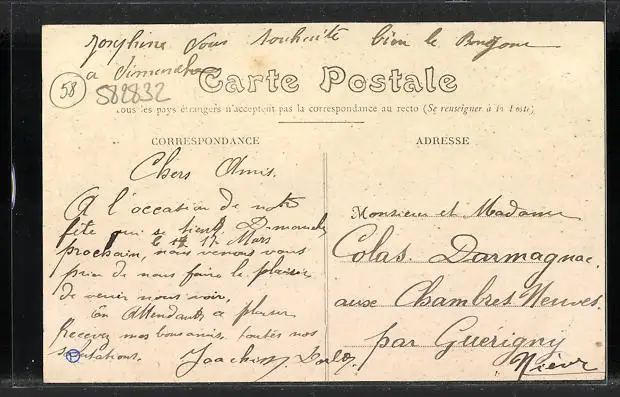 Josephine vous souhaite bien le Bonjour
a Dimanche
Carte Postale
58
582832
Tous les pays étrangers n'acceptent pas la correspondance au recto (Se renseigner à la Poste)
CORRESPONDANCE
ADRESSE
Chers Amis.
A l'occasion de notre
fête qui se tient Dimanche
le 17 Mars
prochain, nous venons vous
prier de nous faire le plaisir
de venir nous voir.
En Attendant a plaisir
Recevez nos bons amis, toutes nos
salutations.
Joachim
Monsieur et Madame
Colas Darmagnac.
aux Chambres Neuves.
par Guérigny
Nièvre